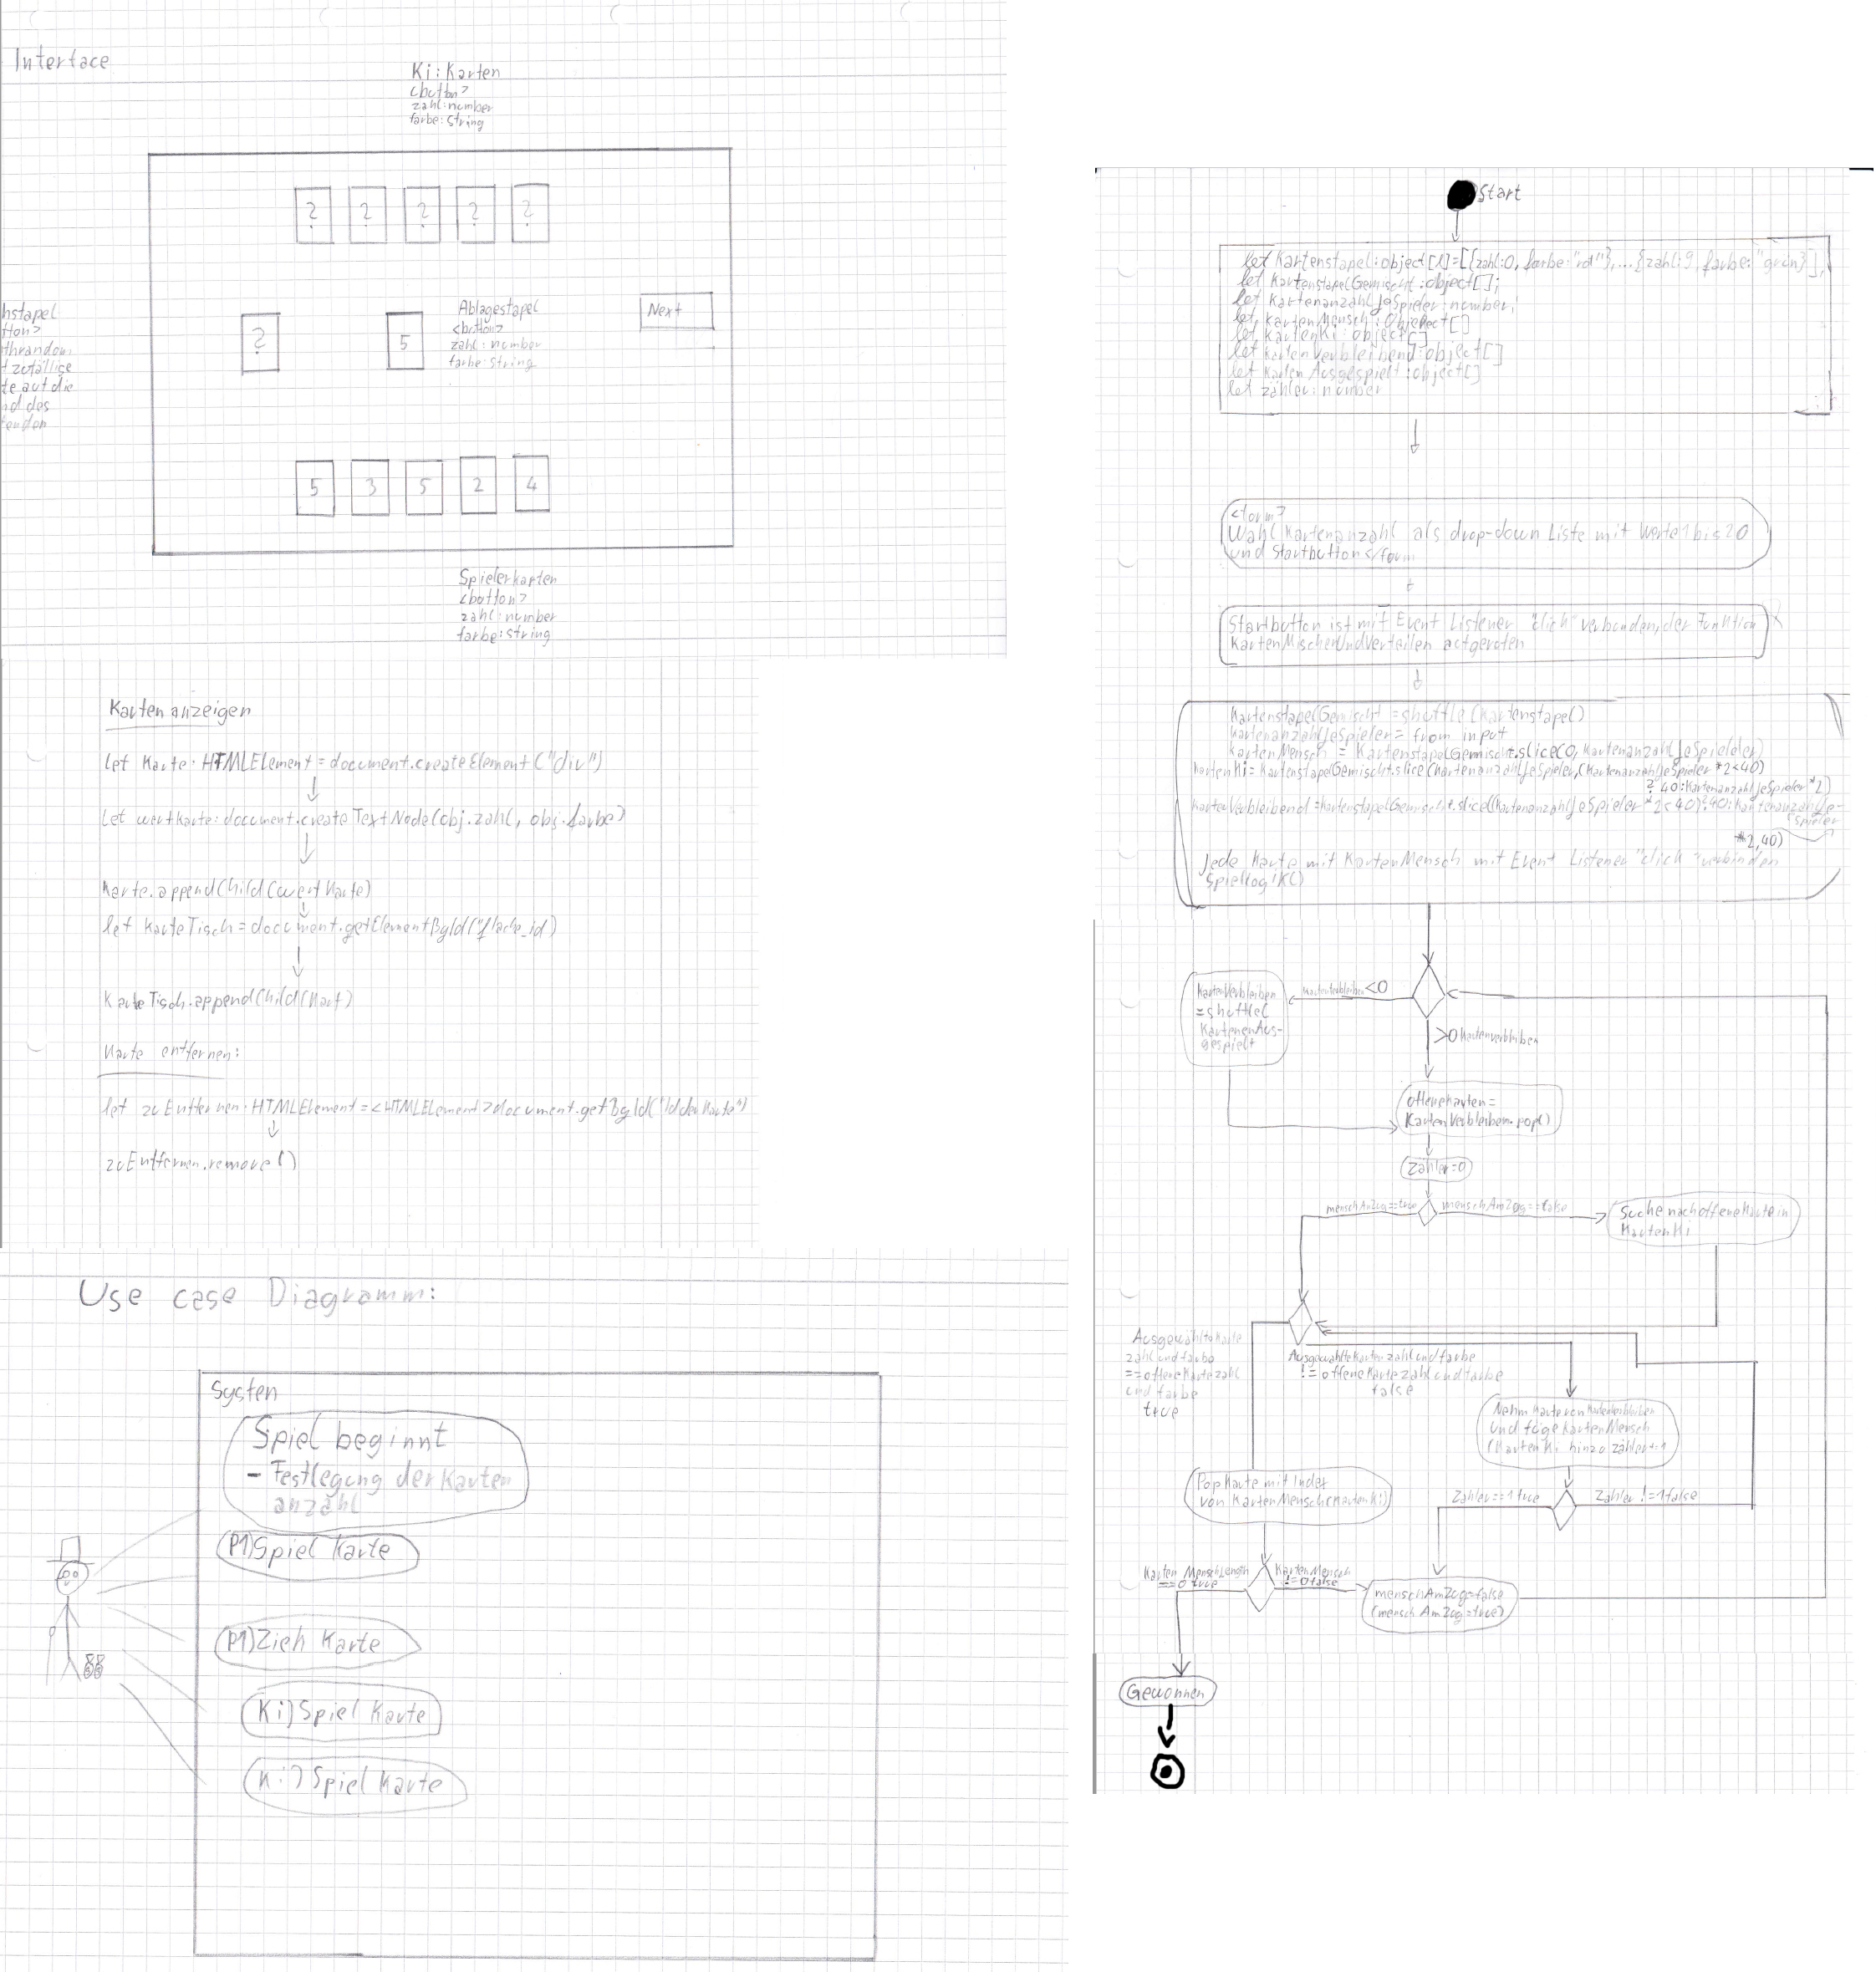 Interface
Ki: Karten
<button>
zahl: number
farbe: string
? ? ? ? ?
hstapel
tton>
thrandom
t zufällige
te auf die
nd des
enden
?
5
Ablagestapel
<button>
zahl: number
farbe: string
Next
5 3 5 2 4
Spielerkarten
<button>
zahl: number
farbe: string
Karten anzeigen
let Karte: HTMLElement = document.createElement("div")
let wertKarte: document.createTextNode(obj.zahl, obj.farbe)
Karte.appendChild(wertKarte)
let KarteTisch = document.getElementById("fläche_id)
KarteTisch.appendChild(Kart)
Karte entfernen:
let zuEntfernen: HTMLElement = <HTMLElement> document.getById("IdderKarte")
zuEntfernen.remove()
Use case Diagramm:
System
Spiel beginnt
- Festlegung der Karten
anzahl
(P1) Spiel Karte
(P1) Zieh Karte
Ki) Spiel Karte
Ki) Spiel Karte
Start
let Kartenstapel: object[] = [{zahl:0, farbe:"rot"},...{zahl:9, farbe:"grün}],
let KartenstapelGemischt: object[];
let KartenanzahlJeSpieler: number;
let KartenMensch: Object[]
let KartenKi: object[]
let KartenVerbleibend: object[]
let KartenAusgespielt: object[]
let zähler: number
<form>
Wahl Kartenanzahl als drop-down Liste mit Werte 1 bis 20
und Startbutton </form
Startbutton ist mit Event Listener "click" verbunden, der Funktion
KartenMischenUndVerteilen aufgerufen
KartenstapelGemischt = shuffle(Kartenstapel)
KartenanzahlJeSpieler = from input
KartenMensch = KartenstapelGemischt.slice(0, KartenanzahlJeSpieler)
KartenKi = KartenstapelGemischt.slice(KartenanzahlJeSpieler, (KartenanzahlJeSpieler *2<40)
? 40: KartenanzahlJeSpieler*2)
KartenVerbleibend = KartenstapelGemischt.slice((KartenanzahlJeSpieler*2<40)? 40: KartenanzahlJe-
Spieler
*2,40)
Jede Karte mit KartenMensch mit Event Listener "click" verbinden
Spiellogik()
KartenVerbleiben
= shuffle(
KartenenAus-
gespielt
Kartenverbleiben <0
>0 Kartenverbleiben
offenekarten =
KartenVerbleiben.pop()
Zähler=0
menschAmZug==true
menschAmZug==false
Suche nach offene Karte in
KartenKi
Ausgewählte Karte
zahl und farbe
== offene Karte zahl
und farbe
true
Ausgewählte Karten zahl und farbe
!= offene Karte zahl und farbe
false
Nehm Karte von KartenVerbleiben
und füge KartenMensch
(KartenKi hinzu zähler+1
Pop Karte mit Index
von KartenMensch(KartenKi)
Zähler==1 true
Zähler !=1 false
Karten Mensch Length
==0 true
KartenMensch
!=0 false
menschAmZug=false
(menschAmZug=true)
Gewonnen